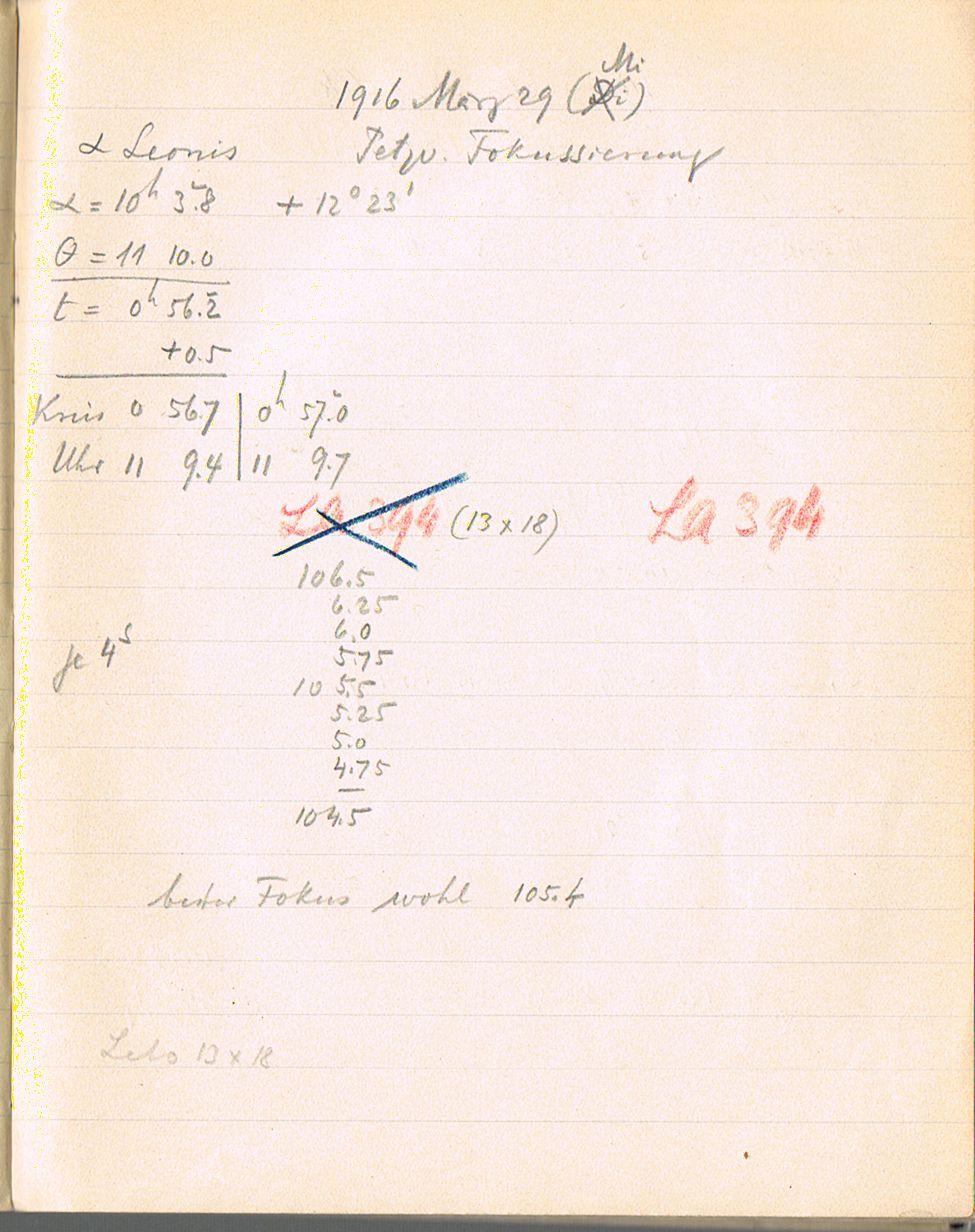 Mi
1916 März 29 (Di)
α Leonis Petzv. Fokussierung
α = 10h 3.m8 + 12° 23'
θ = 11 10.0
t = 0h 56.m2
+0.5
Kreis 0 56.7 | 0h 57.m0
Uhr 11 9.4 | 11 9.7
LA 394 (13 x 18) LA 394
106.5
6.25
6.0
je 4s 5.75
105.5
5.25
5.0
4.75
104.5
bester Fokus wohl 105.4
13 x 18